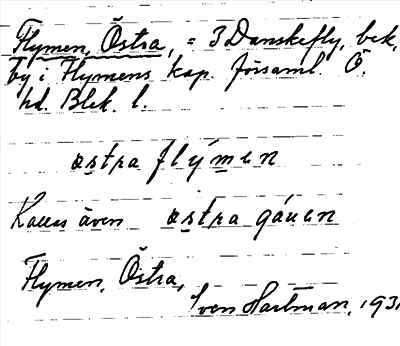 Flymen, Östra, = 3 Danskefly, bek.
by i Flymens kap. församl. Ö.
hd. Blek. l.
østra flýmen
Kallas även østra gáuen
Flymen, Östra,
Sven Hartman, 193